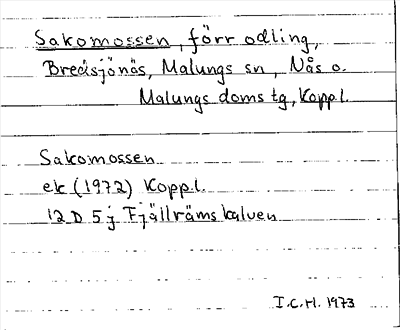 Sakomossen, förr odling,
Bredsjönäs, Malungs sn, Nås o.
Malungs doms tg, Koppl.
Sakomossen
ek (1972) Koppl.
12 D 5 j Fjällrämskalven
I.C.H. 1973